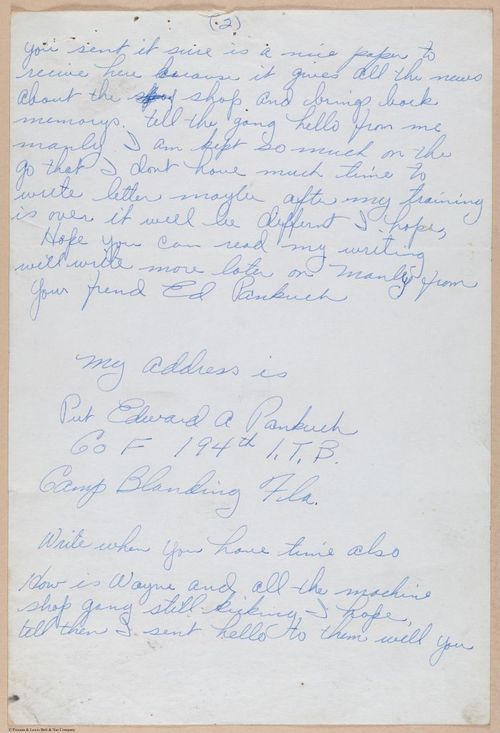 (2)
you sent it sure is a nice paper to
recive here because it gives all the news
about the shop and bring back
memorys. tell the gang hello from me
manly I am kept so much on the
go that I dont have much time to
write letter maybe after my training
is over it well be differnt I hope,
Hope you can read my writing
will write more later on Manly from
your frend Ed Pankuch
My address is
Pvt Edward A Pankuch
Co F 194th I.T.B.
Camp Blanding Fla.
Write when you have time also
How is Wayne and all the machine
shop gang still kicking I hope,
tell then I sent hello to them will you
© Pawson & Lewis Bolt & Nut Company